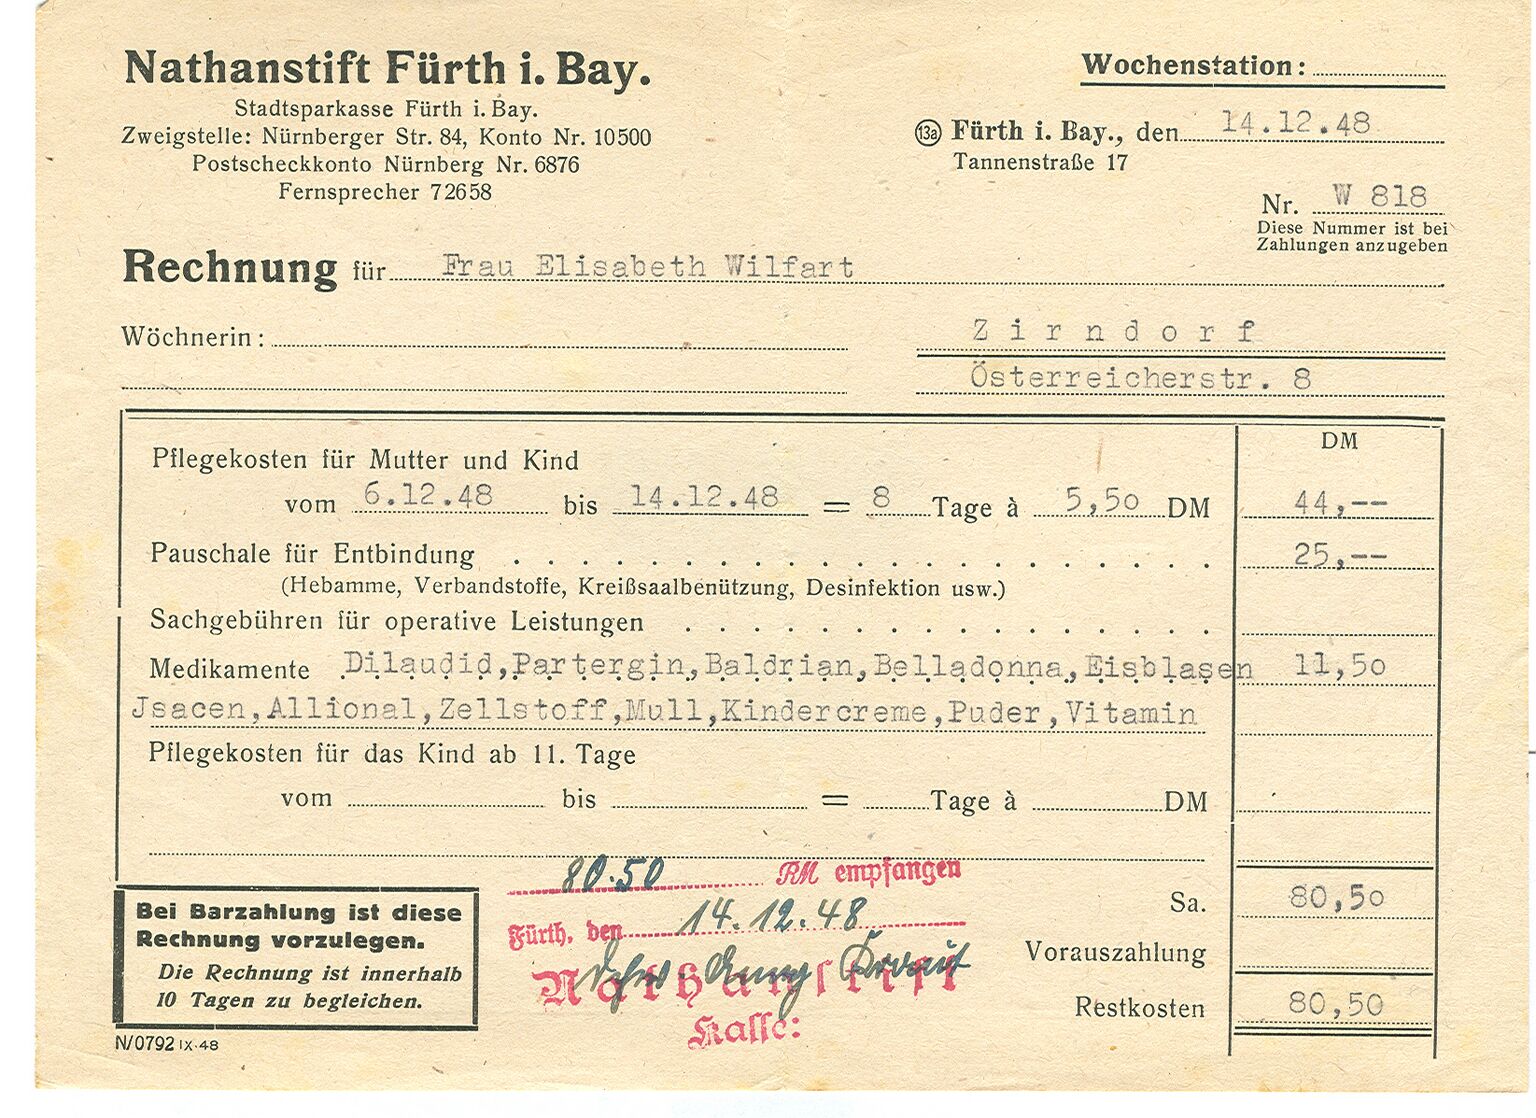 Nathanstift Fürth i. Bay.
Stadtsparkasse Fürth i. Bay.
Zweigstelle: Nürnberger Str. 84, Konto Nr. 10500
Postscheckkonto Nürnberg Nr. 6876
Fernsprecher 72658
Wochenstation:
13a Fürth i. Bay., den 14.12.48
Tannenstraße 17
Nr. W 818
Diese Nummer ist bei
Zahlungen anzugeben
Rechnung für Frau Elisabeth Wilfart
Wöchnerin:
Zirndorf
Österreicherstr. 8
DM
Pflegekosten für Mutter und Kind
vom 6.12.48 bis 14.12.48 = 8 Tage à 5,50 DM 44,--
Pauschale für Entbindung 25,--
(Hebamme, Verbandstoffe, Kreißsaalbenützung, Desinfektion usw.)
Sachgebühren für operative Leistungen
Medikamente Dilaudid,Partergin,Baldrian,Belladonna,Eisblasen 11,50
Jsacen,Allional,Zellstoff,Mull,Kindercreme,Puder,Vitamin
Pflegekosten für das Kind ab 11. Tage
vom bis = Tage à DM
80.50 RM empfangen
Fürth, den 14.12.48
Nathanstift
Kasse:
Bei Barzahlung ist diese
Rechnung vorzulegen.
Die Rechnung ist innerhalb
10 Tagen zu begleichen.
Sa. 80,50
Vorauszahlung
Restkosten 80,50
N/0792 IX-48